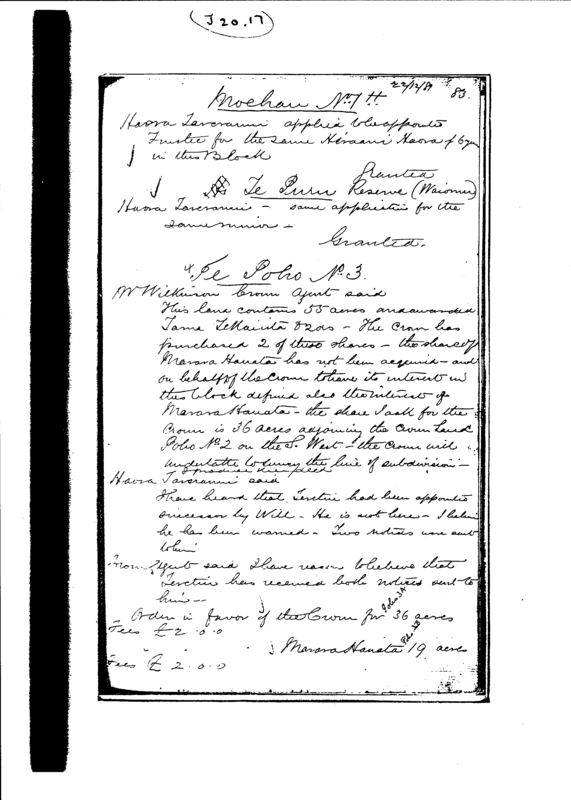 J 20.17
22/12/89 83.
Moehau No 1 H
Haora Tareranui applied to be appointed
Trustee for the same Hiraani Haora f 6 yrs
in this Block
Granted
Te Puru Reserve (Waiomu)
Haora Tareranui – same application for the
same minor –
Granted.
Te Poho No 3.
Mr Wilkinson Crown Agent said
This land contains 55 acres and awarded
Tama & 2 ors – The Crown has
purchased 2 of these shares – the share of
Marara Hauata has not been acquired – and
on behalf of the Crown to have its interest in
this block defined also the interest of
Marara Hauata – the share I ask for the
Crown is 36 acres adjoining the Crown Land
Poho No 2 on the S. West – the Crown will
undertake to survey the line of subdivision –
I produce the deed
Haora Tareranui said
I have heard that had been appointed
successor by Will – He is not here – I believe
he has been warned – Two notices were sent
to him
Crown Agent said I have reason to believe that
has received both notices sent to
him –
Order in favor of the Crown for Poho 3A 36 acres
Fees £2.0.0
Marara Hauata Poho 3B 19 acres
Fees £2.0.0